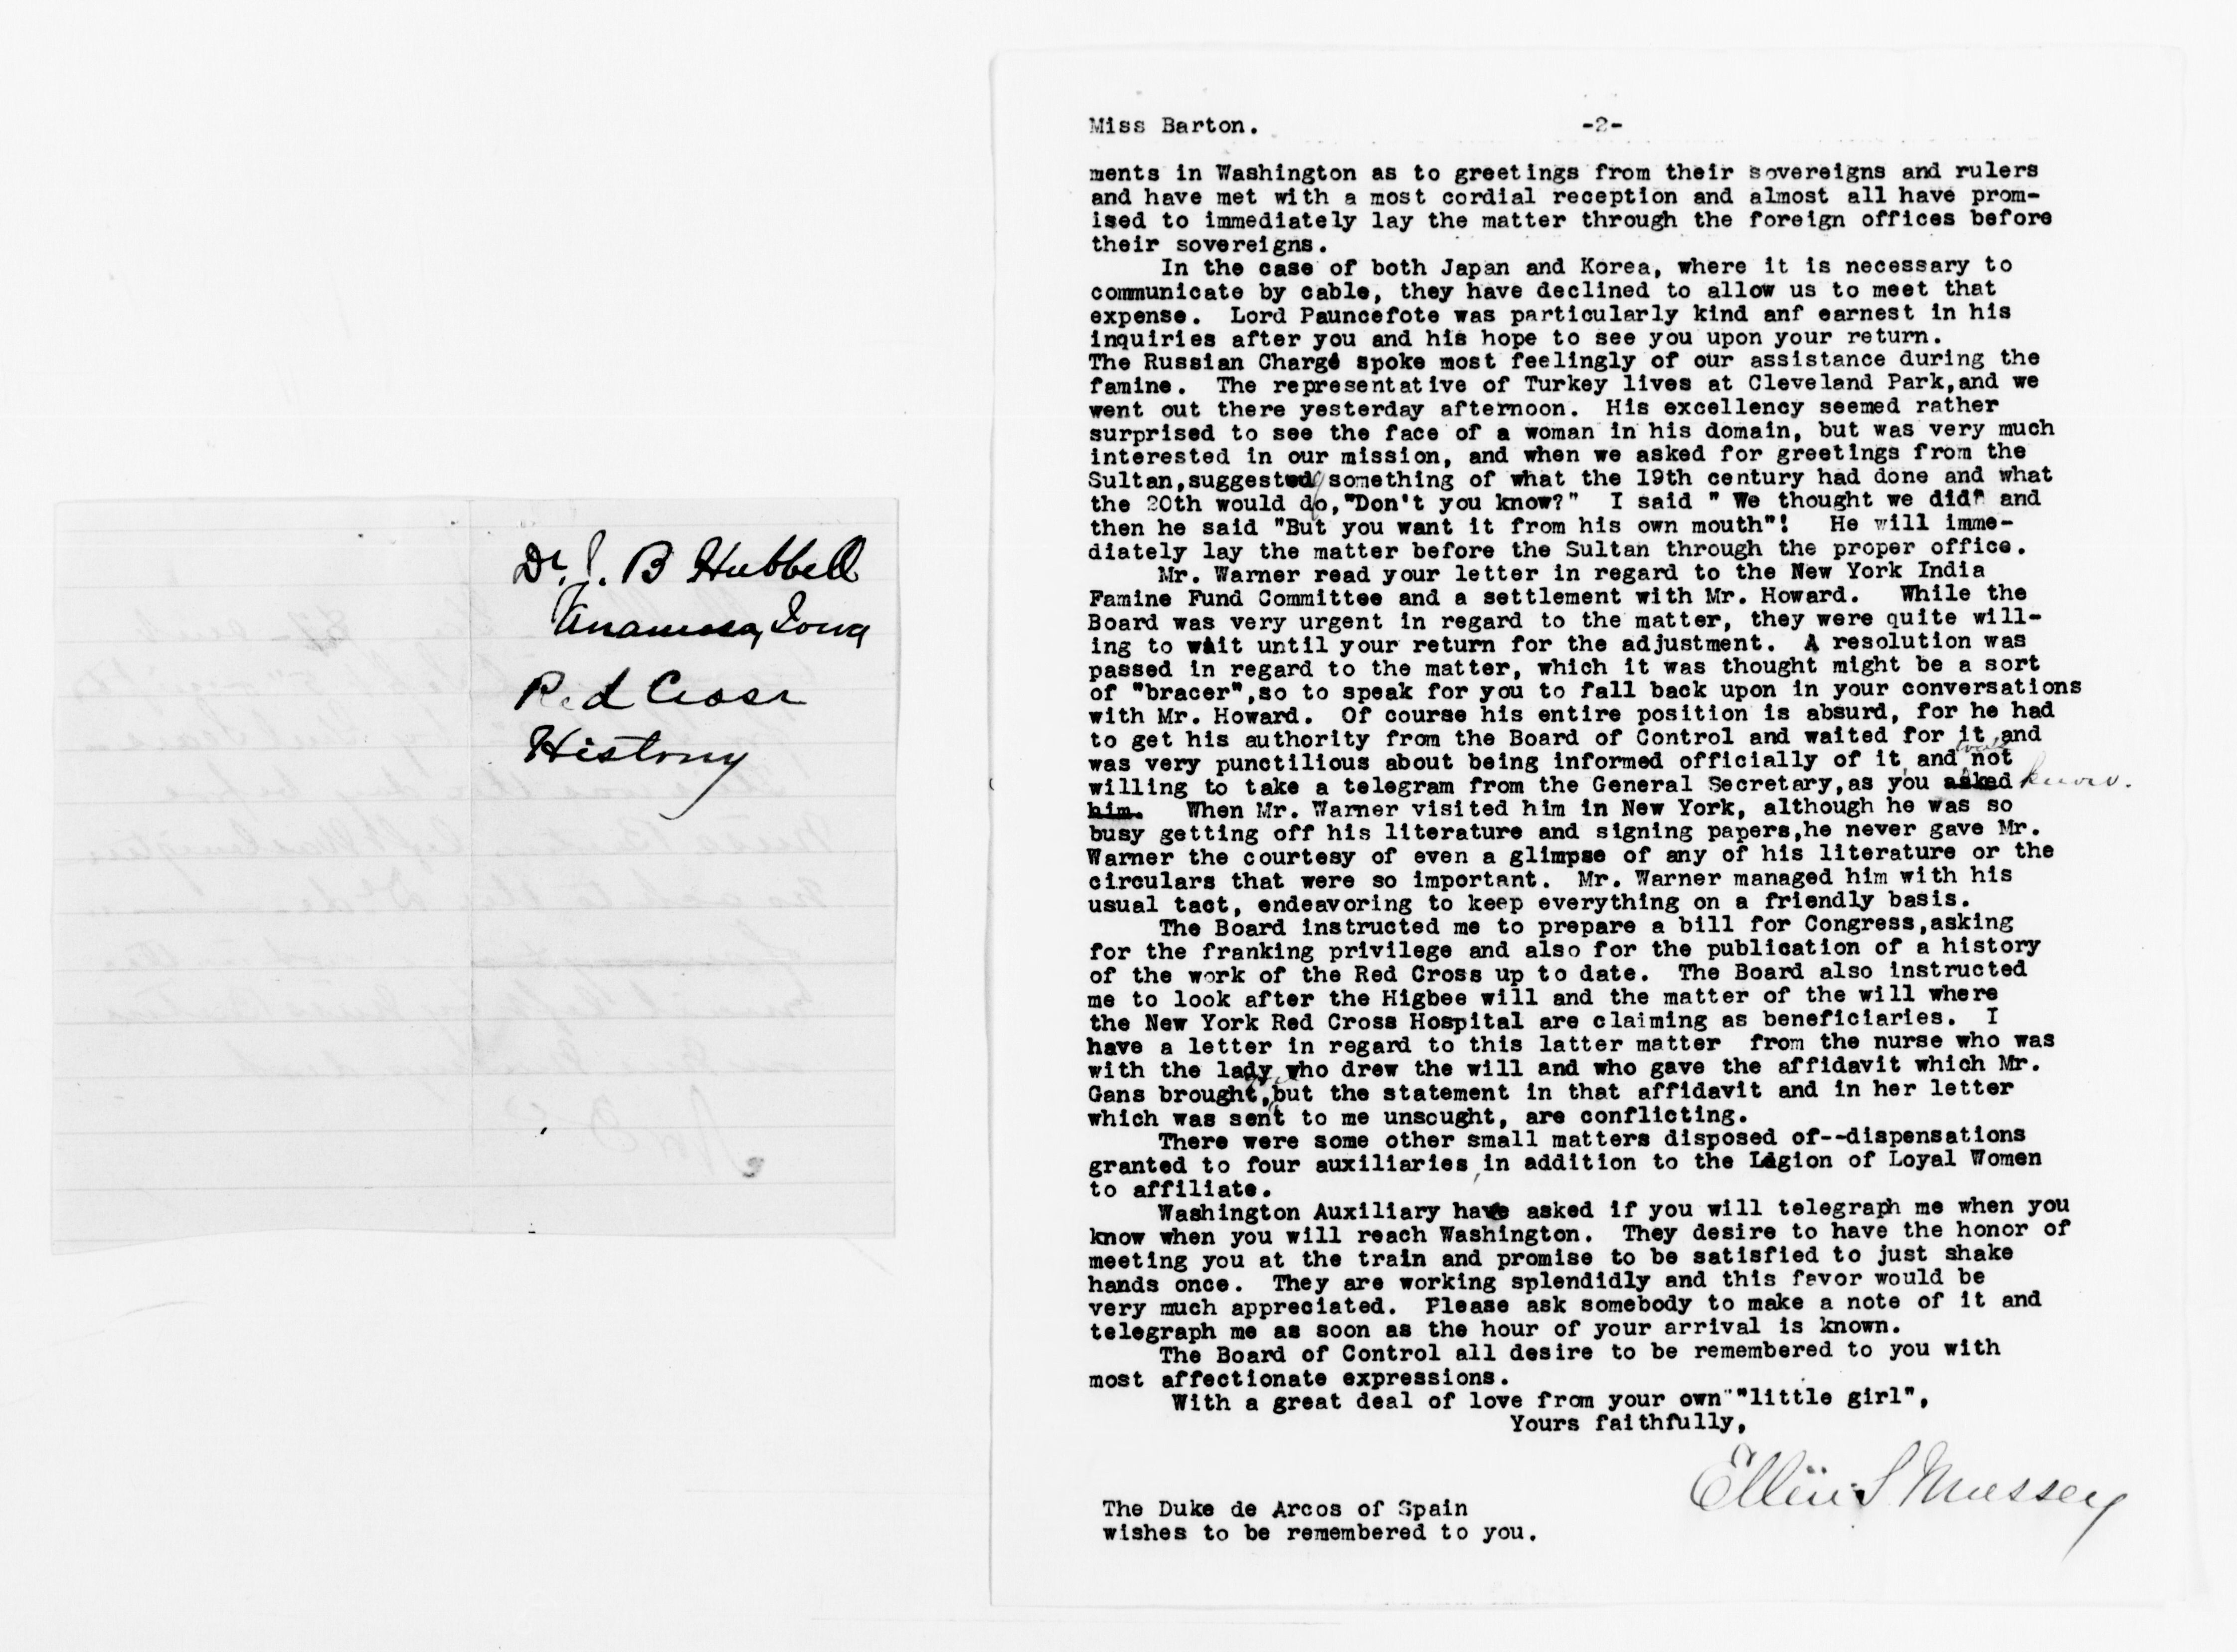 Dr. J. B Hubbell
Anamosa, Iowa
Red Cross
History
Miss Barton. -2-
ments in Washington as to greetings from their sovereigns and rulers
and have met with a most cordial reception and almost all have prom-
ised to immediately lay the matter through the foreign offices before
their sovereigns.
In the case of both Japan and Korea, where it is necessary to
communicate by cable, they have declined to allow us to meet that
expense. Lord Pauncefote was particularly kind anf earnest in his
inquiries after you and his hope to see you upon your return.
The Russian Chargé spoke most feelingly of our assistance during the
famine. The representative of Turkey lives at Cleveland Park,and we
went out there yesterday afternoon. His excellency seemed rather
surprised to see the face of a woman in his domain, but was very much
interested in our mission, and when we asked for greetings from the
Sultan,suggested something of what the 19th century had done and what
the 20th would do,"Don't you know?" I said " We thought we did" and
then he said "But you want it from his own mouth"! He will imme-
diately lay the matter before the Sultan through the proper office.
Mr. Warner read your letter in regard to the New York India
Famine Fund Committee and a settlement with Mr. Howard. While the
Board was very urgent in regard to the matter, they were quite will-
ing to wait until your return for the adjustment. A resolution was
passed in regard to the matter, which it was thought might be a sort
of "bracer",so to speak for you to fall back upon in your conversations
with Mr. Howard. Of course his entire position is absurd, for he had
to get his authority from the Board of Control and waited for it and
was very punctilious about being informed officially of it, and was not
willing to take a telegram from the General Secretary,as you asked know.
him. When Mr. Warner visited him in New York, although he was so
busy getting off his literature and signing papers,he never gave Mr.
Warner the courtesy of even a glimpse of any of his literature or the
circulars that were so important. Mr. Warner managed him with his
usual tact, endeavoring to keep everything on a friendly basis.
The Board instructed me to prepare a bill for Congress,asking
for the franking privilege and also for the publication of a history
of the work of the Red Cross up to date. The Board also instructed
me to look after the Higbee will and the matter of the will where
the New York Red Cross Hospital are claiming as beneficiaries. I
have a letter in regard to this latter matter from the nurse who was
with the lady who drew the will and who gave the affidavit which Mr.
Gans brought, but the statement in that affidavit and in her letter
which was sent to me unsought, are conflicting.
There were some other small matters disposed of--dispensations
granted to four auxiliaries, in addition to the Legion of Loyal Women
to affiliate.
Washington Auxiliary have asked if you will telegraph me when you
know when you will reach Washington. They desire to have the honor of
meeting you at the train and promise to be satisfied to just shake
hands once. They are working splendidly and this favor would be
very much appreciated. Please ask somebody to make a note of it and
telegraph me as soon as the hour of your arrival is known.
The Board of Control all desire to be remembered to you with
most affectionate expressions.
With a great deal of love from your own "little girl",
Yours faithfully,
Ellen S Mussey
The Duke de Arcos of Spain
wishes to be remembered to you.